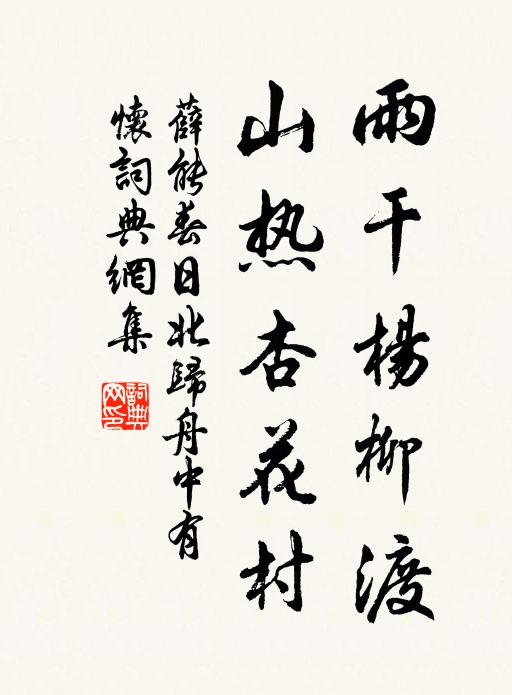 雨干楊柳渡
山热杏花村
薛能春日北歸舟中有
懷詞典網集
詞典
网印